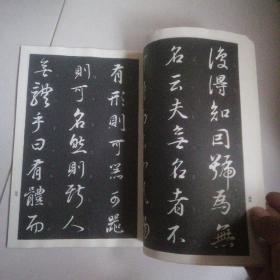 復得知同號為無
名云夫無名者不
有形則可器可器
則可名然則斯人
無體乎曰有體而